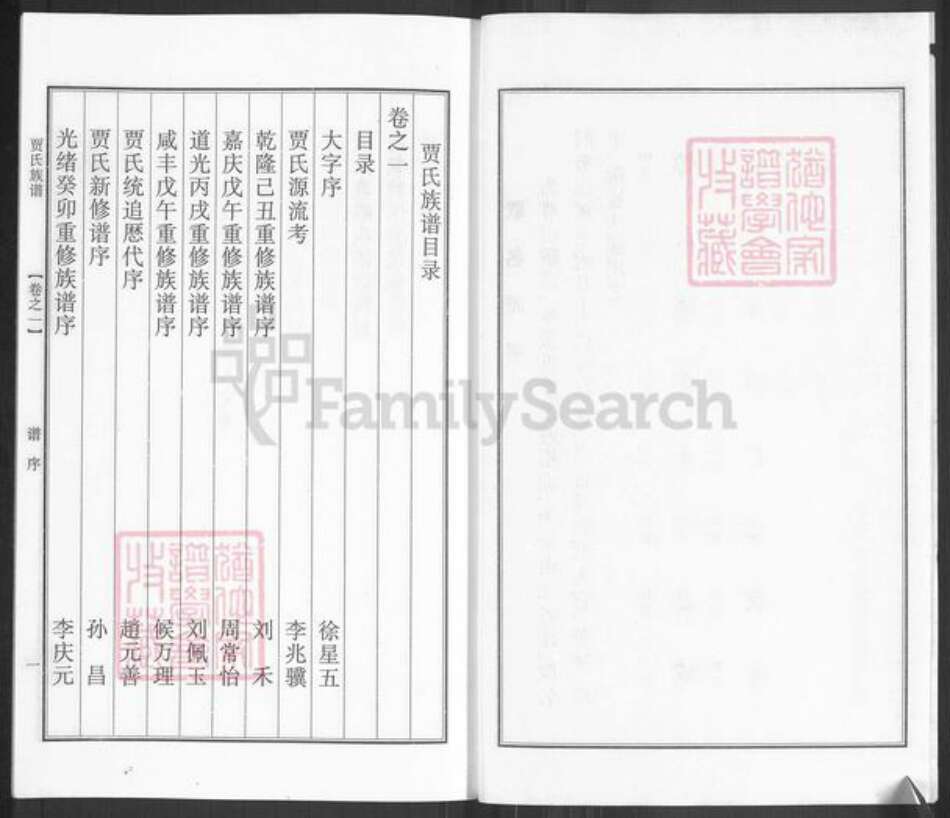 贾氏族谱目录
卷之一
目录
大字序 徐星五
贾氏源流考 李兆骥
乾隆己丑重修族谱序 刘禾
嘉庆戊午重修族谱序 周常怡
道光丙戌重修族谱序 刘佩玉
咸丰戊午重修族谱序 候万理
贾氏统追歷代序 趙元善
贾氏新修谱序 孙昌
光绪癸卯重修族谱序 李庆元
贾氏族谱
【卷之一】
谱序
一
FamilySearch